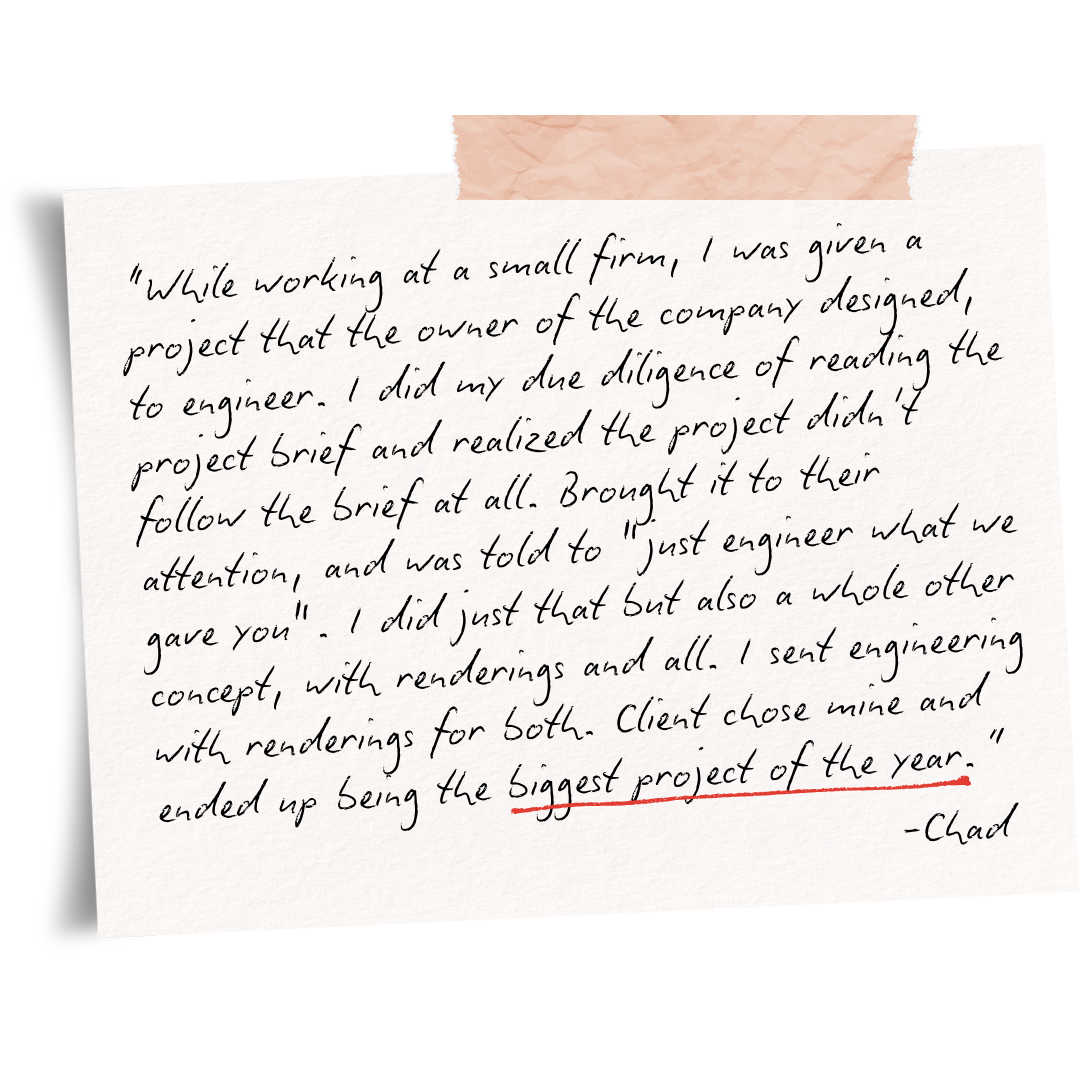 "While working at a small firm, I was given a
project that the owner of the company designed,
to engineer. I did my due diligence of reading the
project brief and realized the project didn't
follow the brief at all. Brought it to their
attention, and was told to "just engineer what we
gave you". I did just that but also a whole other
concept, with renderings and all. I sent engineering
with renderings for both. Client chose mine and
ended up being the biggest project of the year."
-Chad